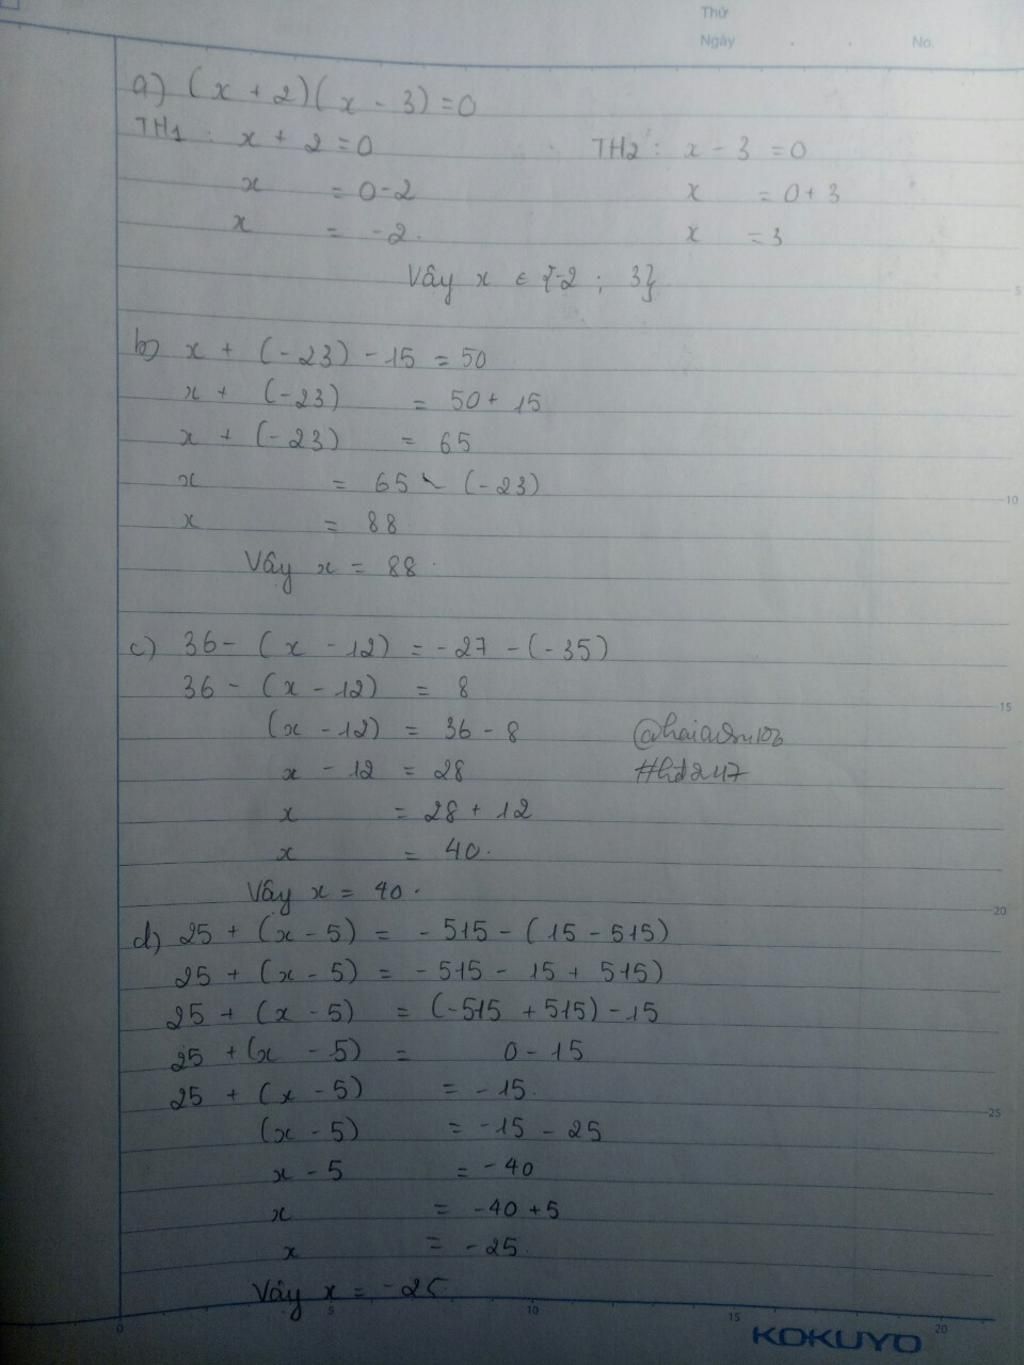 Thứ
Ngày . . No.
a) (x + 2)(x - 3) = 0
TH1 : x + 2 = 0
x = 0 - 2
x = -2.
TH2 : x - 3 = 0
x = 0 + 3
x = 3
Vây x ∈ {-2 ; 3}
5
b) x + (-23) - 15 = 50
x + (-23) = 50 + 15
x + (-23) = 65
x = 65 - (-23)
10
x = 88
Vây x = 88.
c) 36 - (x - 12) = -27 - (-35)
36 - (x - 12) = 8
15
(x - 12) = 36 - 8
x - 12 = 28
#hd247
x = 28 + 12
x = 40.
Vây x = 40.
20
d) 25 + (x - 5) = -515 - (15 - 515)
25 + (x - 5) = -515 - 15 + 515)
25 + (x - 5) = (-515 + 515) - 15
25 + (x - 5) = 0 - 15
25 + (x - 5) = -15.
25
(x - 5) = -15 - 25
x - 5 = -40
x = -40 + 5
x = -25.
Vây x = -25.
0 5 10 15 20
KOKUYO